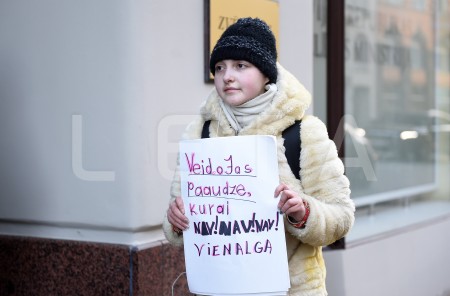 Veidojas
paaudze,
kurai
NAV! NAV! NAV!
VIENALGA
LETA